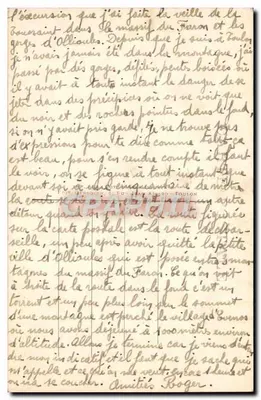 l'excursion que j'ai faite la veille de la
Toussaint dans le massif du Faron et les
gorges d'Ollioules. Depuis que je suis à Toulon
je n'avais jamais été dans la montagne, j'ai
passé par des gorges, défilés, pentes boisées où
il y avait à toute instant le danger de se
jeter dans des précipices où on ne voit que
du noir et des roches pointes dans le fond,
si on n'y avait pris garde. Je ne trouve pas
d'expressions pour te dire comme tout ça
est beau, pour s'en rendre compte il faut
le voir, on se figure à tout instant que
devant soi une cinquantaine de mètres
la route
figurée
sur la carte postale est la route de Mar-
seille, un peu après avoir quitté la petite
ville d'Ollioules qui est posée entre 3 mon-
tagnes du massif du Faron. Ce qu'on voit
à droite de la route dans le fond c'est un
torrent et un peu plus loin sur le sommet
d'une montagne est perché le village d'Evenos
où nous avons déjeuné à mètres environ
d'altitude. Allons je termine car je viens d'enten-
dre mon indicatif et il faut que je sache qui
m'appelle et ce qu'on me veut,
on ira se coucher. Amitiés Roger.